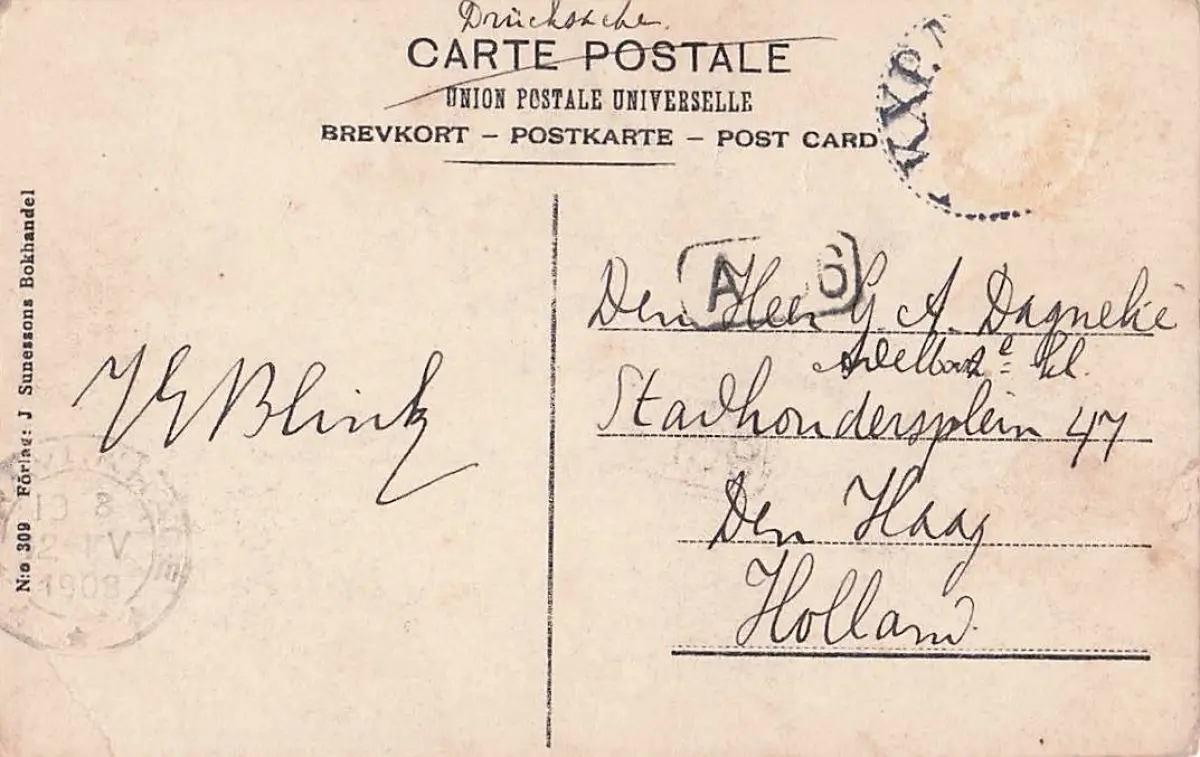 Drucksache.
CARTE POSTALE
UNION POSTALE UNIVERSELLE
BREVKORT – POSTKARTE – POST CARD
PKXP.
N:o 309 Förlag: J Sunessons Bokhandel
A O
Den Heer G. A. Dagnelie
Stadhoudersplein 47
Den Haag
Holland.
JG Blink
1908